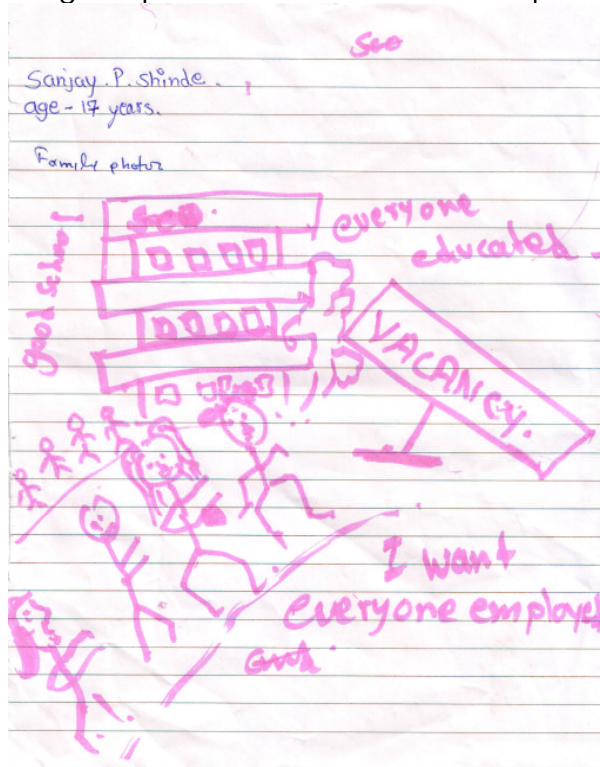 Sanjay. P. Shinde.
age - 17 years.
Family photos
good School
everyone
educated.
VACANCY.
I want
everyone employed